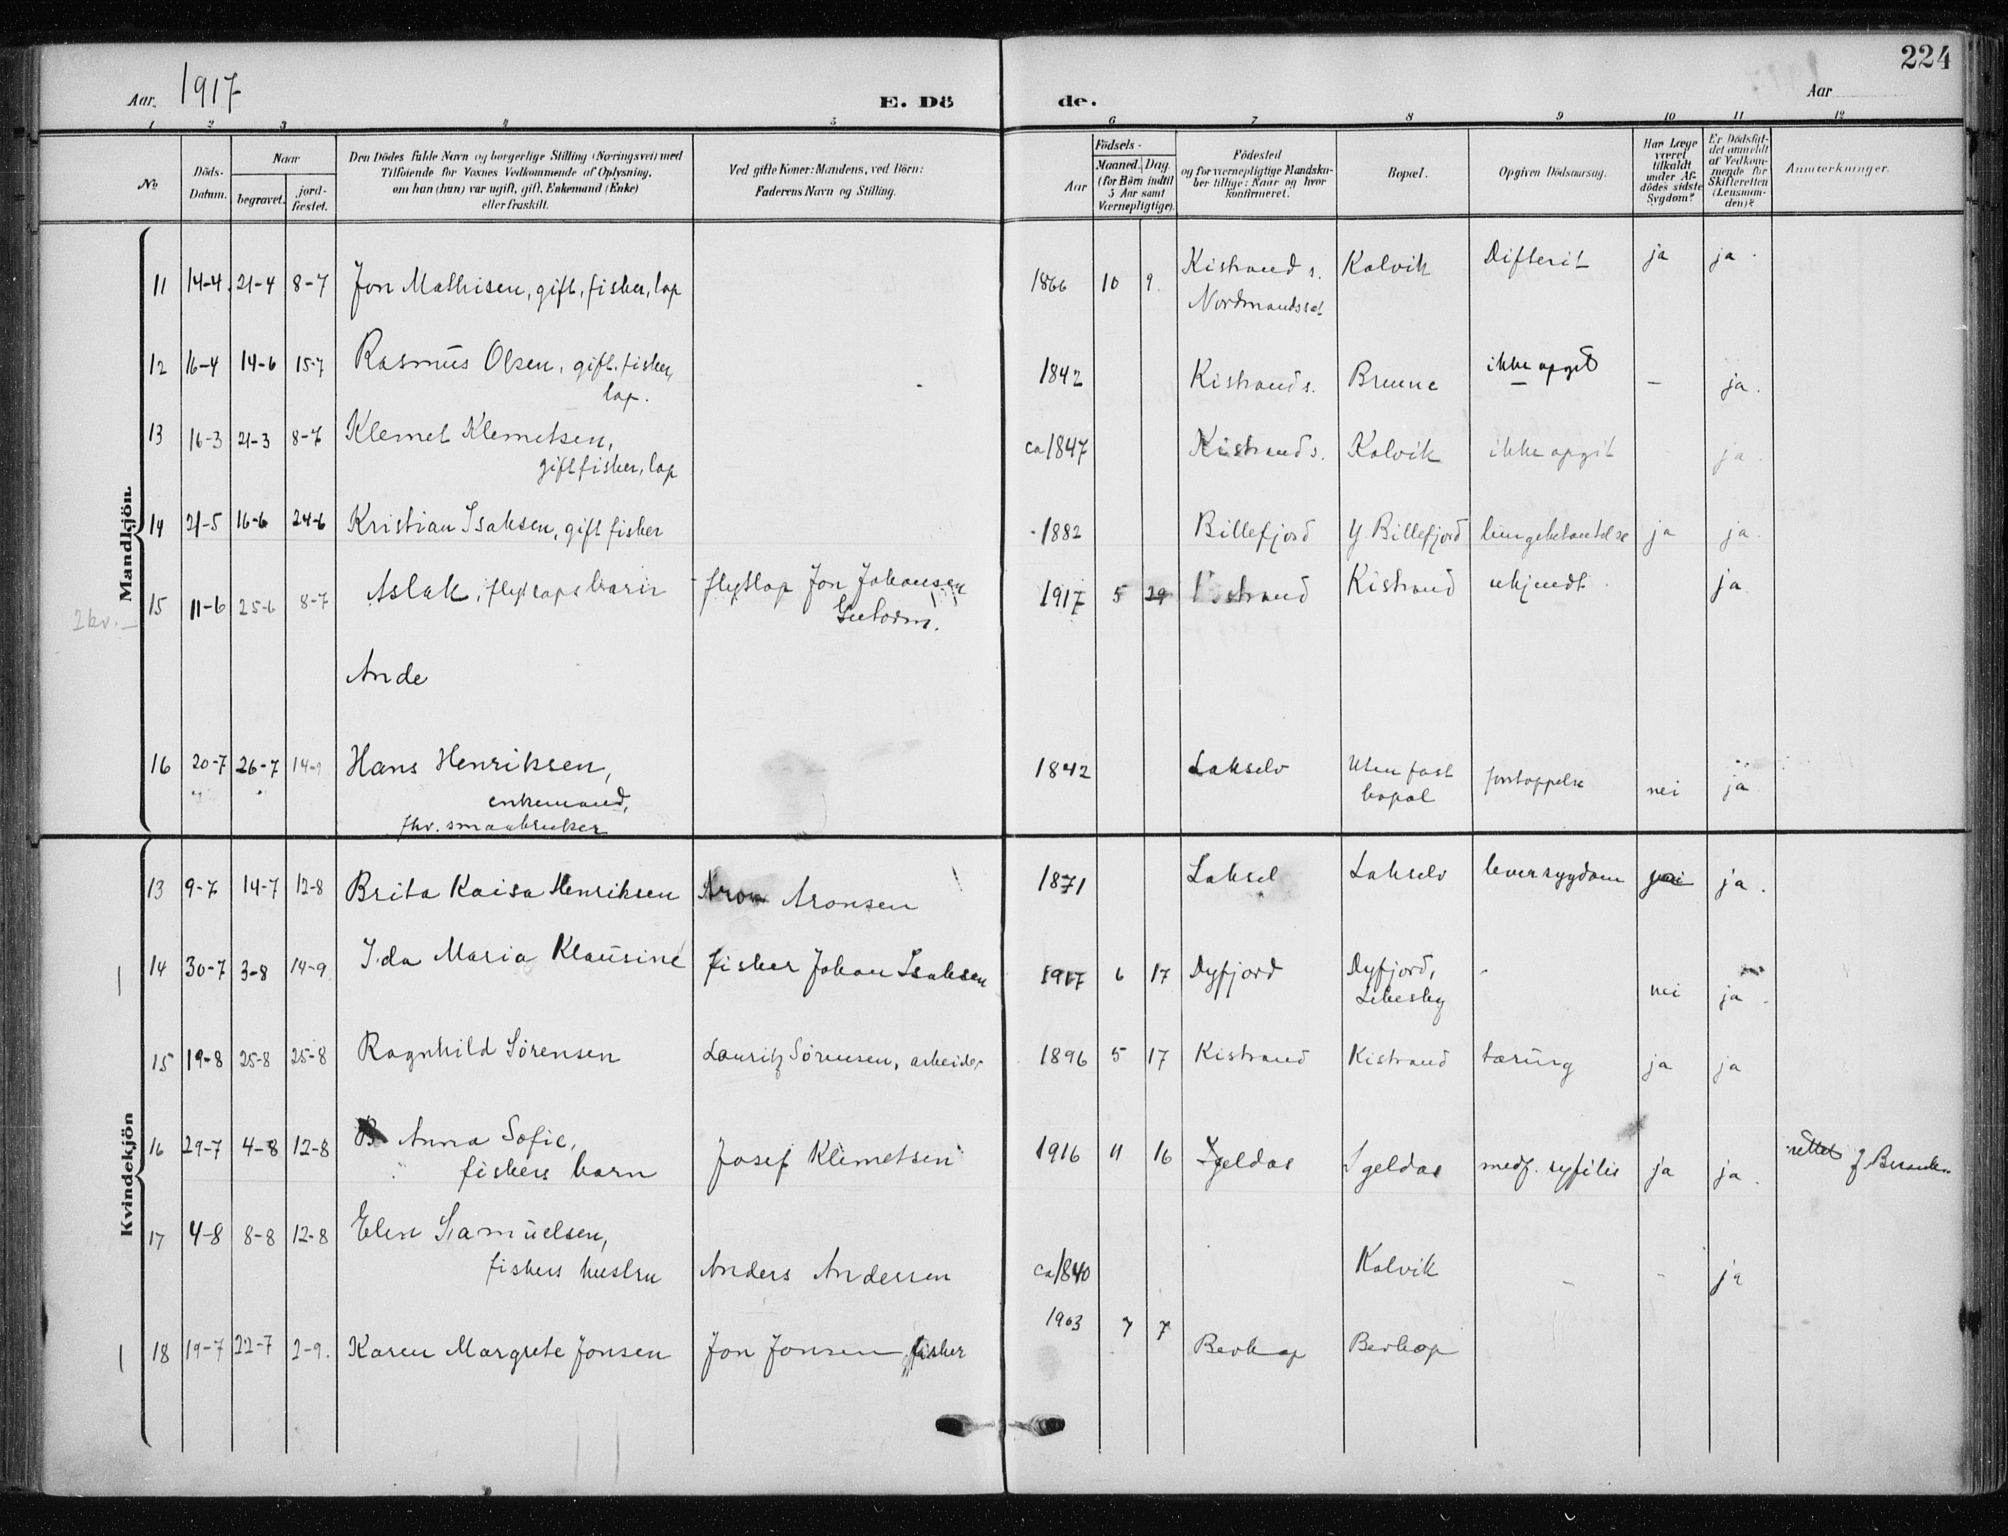 224
Aar. 1917
E. Dö
de.
Aar
1 2 3 4 5 6 7 8 9 10 11 12
No
Döds-Datum.
Naar
begravet.
jord-fæstet.
Den Dödes fulde Navn og borgerlige Stilling (Næringsvei) med
Tilföiende for Voxnes Vedkommende af Oplysning,
om han (hun) var ugift, gift, Enkemand (Enke)
eller fraskilt.
Ved gifte Koner: Mandens, ved Börn:
Faderens Navn og Stilling.
Födsels-
Aar
Maaned. Dag.
(for Börn indtil
5 Aar samt
Værnepligtige).
Födested
og for værnepligtige Mandska-
ber tillige: Naar og hvor
konfirmeret.
Bopæl.
Opgiven Dödsaarsag.
Har Læge
været
tilkaldt
under Af-
dödes sidste
Sygdom?
Er Dödsfal-
det anmeldt
af Vedkom-
mende for
Skifteretten
(Lensman-
den)?
Anmærkninger.
Mandkjön.
11 14-4. 21-4 8-7 Jon Mathisen, gift, fisker, lap 1866 10 9. Kistrand s. Kolvik Difterit ja ja.
Nordmandsset
12 16-4 14-6 15-7 Rasmus Olsen, gift. fisker, 1842 Kistrand s. Brenne ikke opgit - ja.
lap.
13 16-3 21-3 8-7 Klemet Klemetsen, ca 1847 Kistrand s. Kolvik ikke opgit ja.
gift fisker, lap
14 21-5 16-6 24-6 Kristian Isaksen, gift fisker 1882 Billefjord Y. Billefjord lungebetændelse ja ja.
2 kv. - 15 11-6 25-6 8-7 Aslak, flytlaps barn flytlap Jon Johansen 1917 5 29 Kistrand Kistrand ukjendt ja.
Guttorm.
Ande
16 20-7 26-7 14-9 Hans Henriksen, 1842 Lakselv Uten fast forstoppelse nei ja
enkemand, bopæl
fhv. smaabruker
Kvindekjön
13 9-7 14-7 12-8 Brita Kaisa Henriksen Aron Aronsen 1871 Laksel Lakselv leversygdom ja.
14 30-7 3-8 14-9. Ida Maria Klausine fisker Johan Isaksen 1917 6 17 Dyfjord Dyfjord, - nei ja.
Lebesby
15 19-8 25-8 25-8 Ragnhild Sörensen Lauritz Sörensen, arbeider 1896 5 17 Kistrand Kistrand tæring ja ja
16 29-7 4-8 12-8 Anna Sofie, Josef Klemetsen 1916 11 16 Igeldas Igeldas medf. syfilis ja ja. rettet
fiskers barn
17 4-8 8-8 12-8 Elen Samuelsen,
fiskers hustru Anders Andersen ca 1840 Kolvik - - ja
18 19-7 22-7 2-9. Karen Margrete Jonsen Jon Jonsen fisker 1903 7 7 Bevkop Bevkop